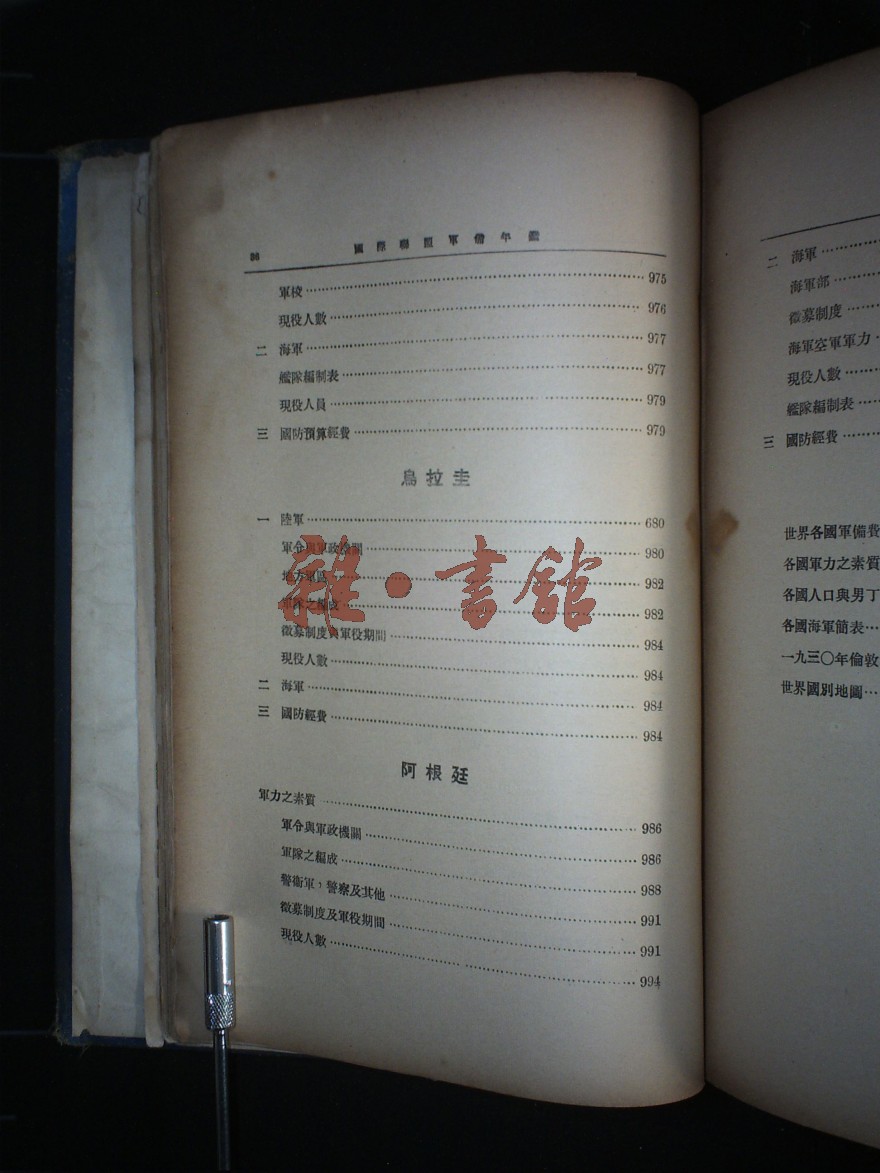 36 國際聯盟軍備年鑑
軍校 975
現役人數 976
二 海軍 977
艦隊編制表 977
現役人員 979
三 國防預算經費 979
烏拉圭
一 陸軍 680
軍令與軍政機關 980
地方軍區 982
軍隊之編成 982
徵募制度與軍役期間 984
現役人數 984
二 海軍 984
三 國防經費 984
阿根廷
軍力之素質 986
軍令與軍政機關 986
軍隊之編成 988
警衞軍，警察及其他 991
徵募制度及軍役期間 991
現役人數 994
雜·書館
二 海軍
海軍部
徵募制度
海軍空軍軍力
現役人數
艦隊編制表
三 國防經費
世界各國軍備費
各國軍力之素質
各國人口與男丁
各國海軍簡表
一九三〇年倫敦
世界國別地圖